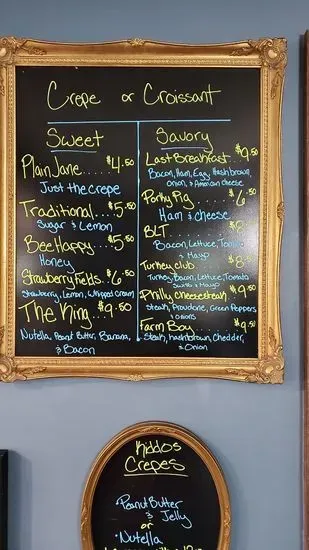 Crepe or Croissant
Sweet
Plain Jane.....$4.50
Just the crepe
Traditional.....$5.50
Sugar & Lemon
Bee Happy.....$5.50
Honey
Strawberry Fields..$6.50
Strawberry, Lemon, Whipped Cream
The King...$9.50
Nutella, Peanut Butter, Banana,
& Bacon
Savory
Last Breakfast...$9.50
Bacon, Ham, Egg, Hashbrown,
Onion, & American Cheese
Porky Pig.......$6.50
Ham & cheese
BLT
Bacon, Lettuce,
& Mayo
Turkey club
Turkey, Bacon, Lettuce, Tomato
& Mayo
Philly Cheesesteak..$9.50
Steak, Provolone, Green Peppers
& Onions
Farm Boy.......$9.50
Steak, Hashbrown, Chedder,
& Onion
Kiddos
Crepes
Peanut Butter
& Jelly
or
Nutella